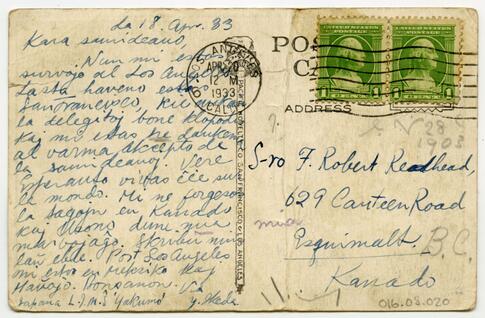 La 18 Apr. 33
Kara samideano
Nun mi estas
survoje al Los Angeles
Lasta haveno estis
Sanfrancisco, kie
la delegitoj bone klopodis
kaj mi estas tre dankema
al varma akcepto de
la samideanoj. Vere
Esperanto vivas ĉie sur
la mondo. Mi ne forgesos
la tagojn en Kanado
kaj ĝisnun dum mia
marvojaĝo. Skribu min
Post Los Angeles
mi estos en Meksiko kaj
Havajo. Bonsanon. Via
L.J.M.S "Rakuyo" Y. Ikeda
LOS ANGELES
APR 20
12 M
1933
CALIF.
SAN FRANCISCO & LOS ANGELES
UNITED STATES POSTAGE
UNITED STATES POSTAGE
1
1
POS
CA
ADDRESS
N 28
1903
S-ro F. Robert Readhead,
629 Canteen Road
mia
Esquimalt. B.C.
Kanado
016.08.020